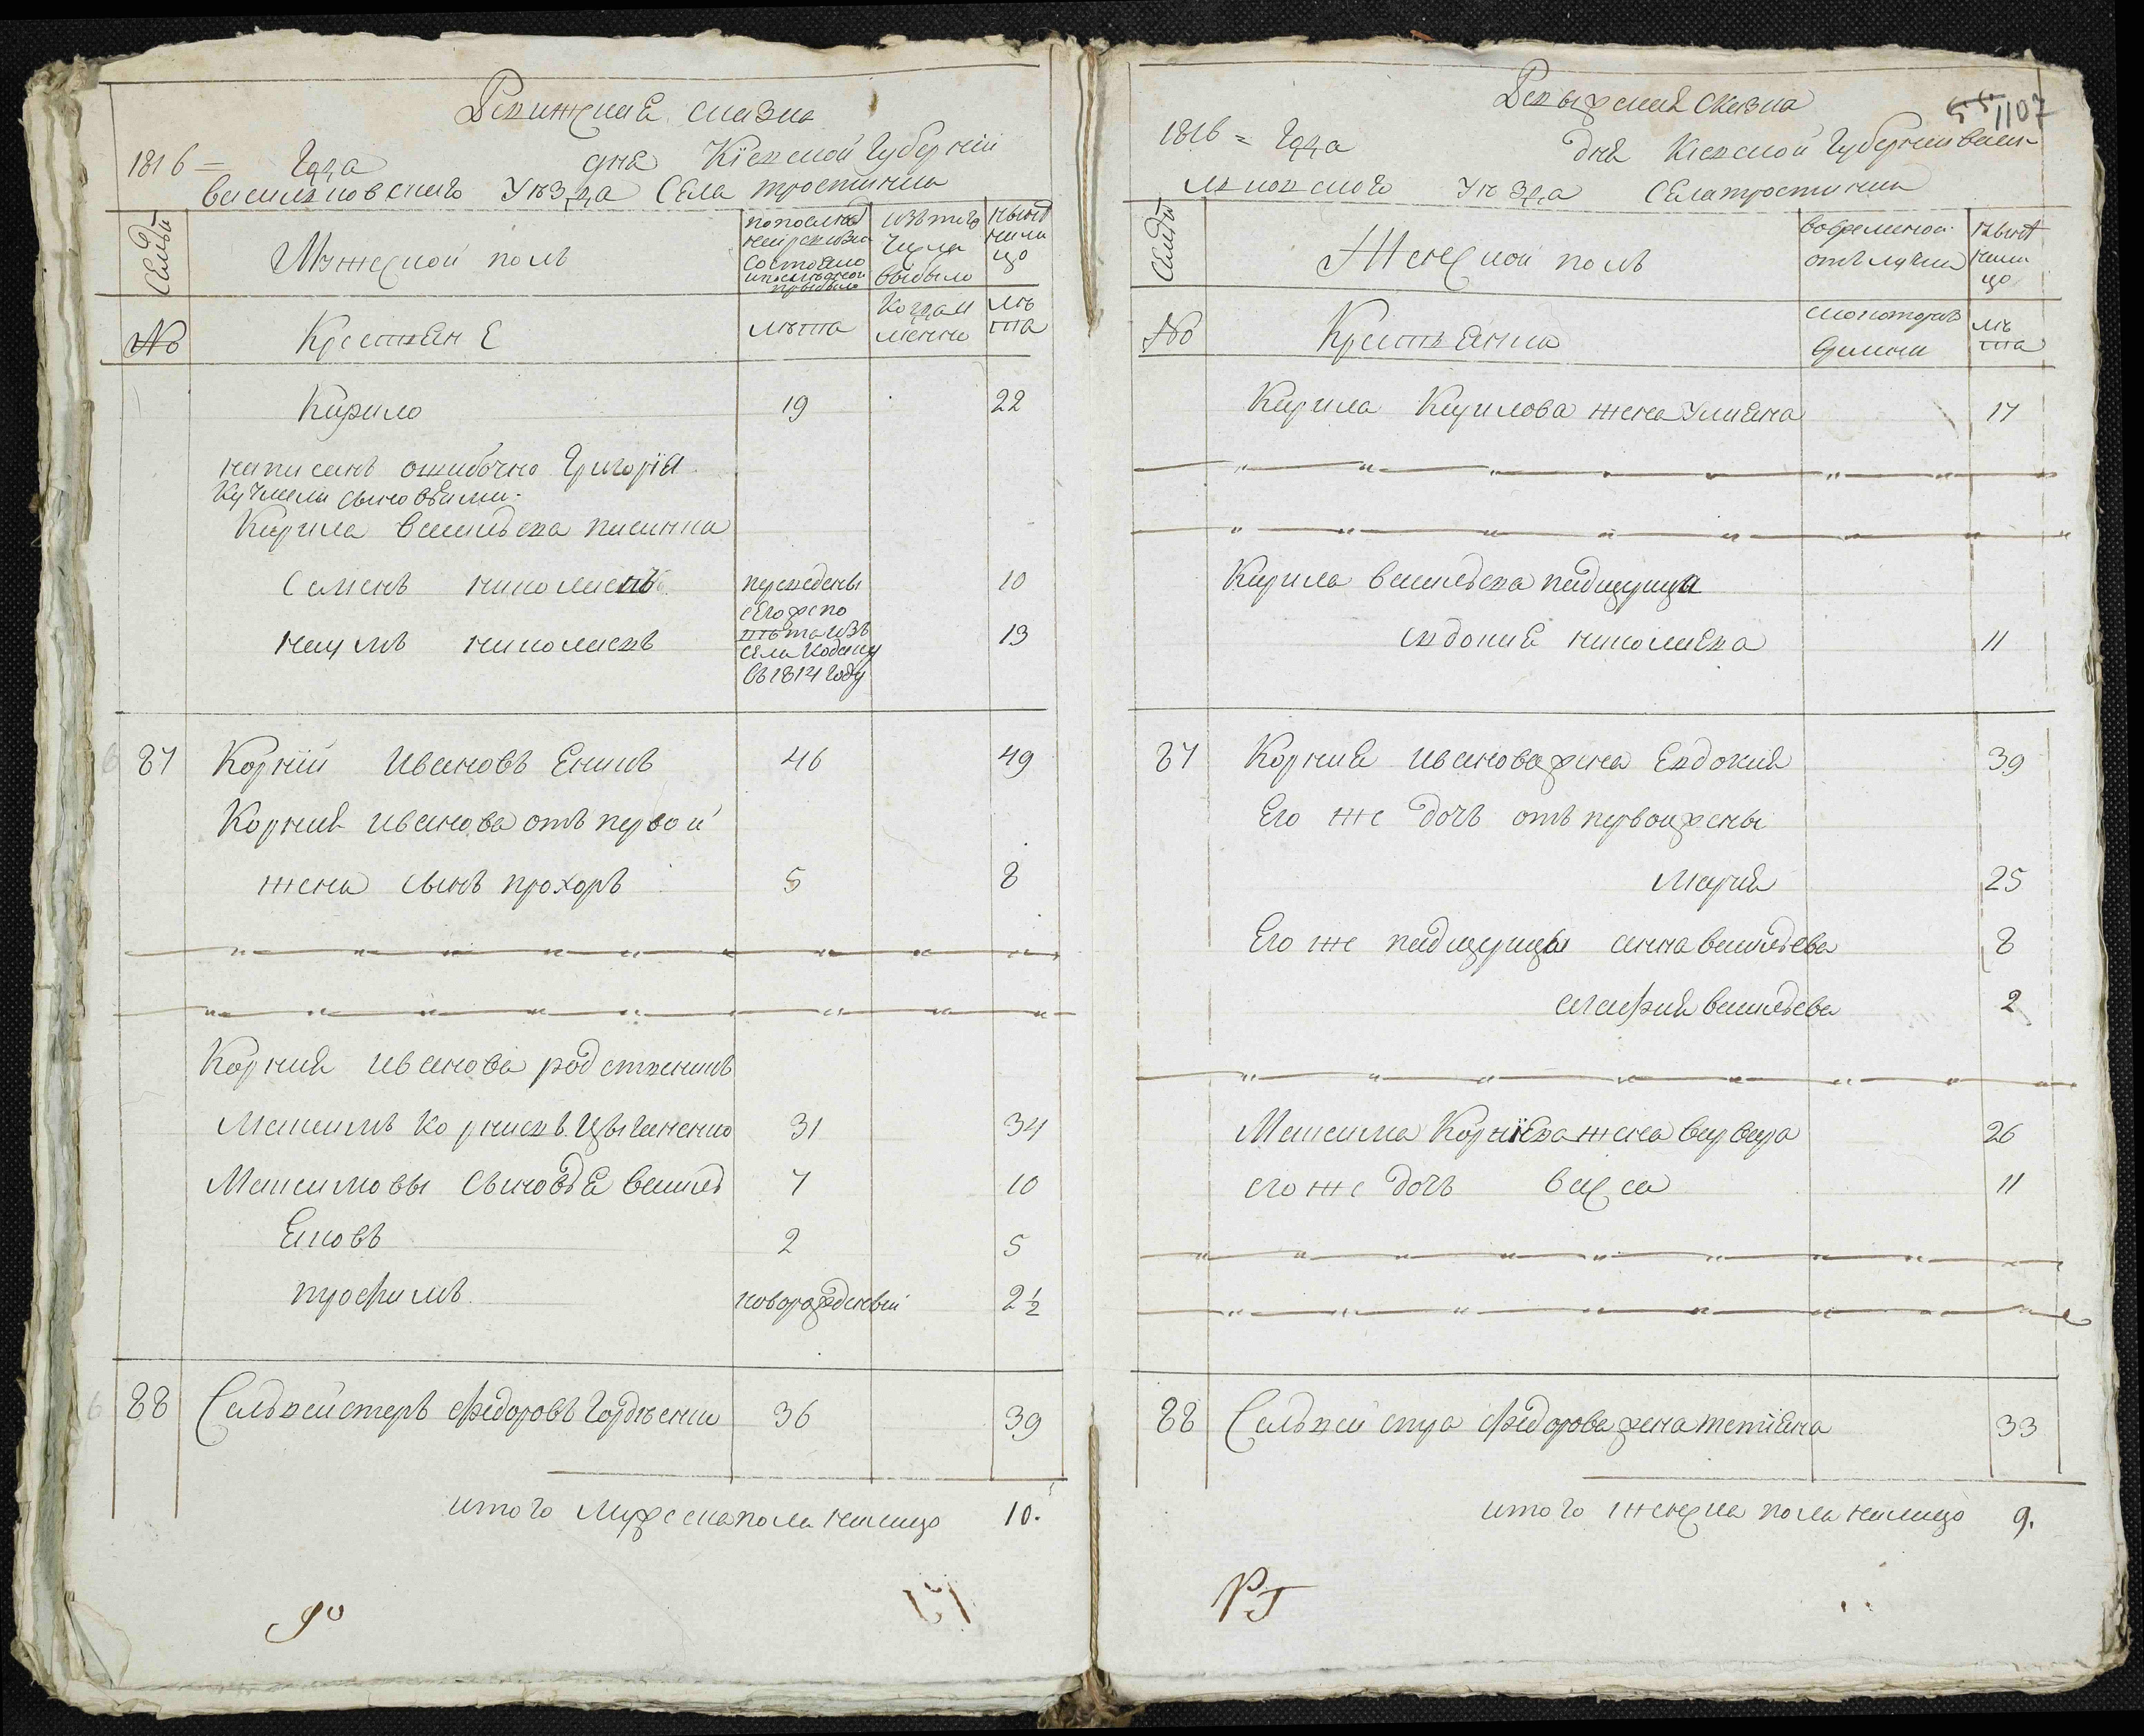 Ревижская сказка
1816 = года дня Кіевской губерніи
васильковского уѣзда села тростинки
Семьи
Мужеской полъ
По последней ревизіи состояло и после оной прибыло
Изъ того числа выбыло
Нынѣ на лицо
№
Крестьяне
лѣта
когда и менно
лѣта
Кирило 19 22
написанъ ошибочно Григорія
Кучмели сыновьями.
Кирила васильева пасинки
Семенъ николаевъ переведены 10
наумъ николаевъ 13
села Кодаку
въ 1814 году
87 Корній Ивановъ 46 49
Корнія Иванова отъ первой
жены сынъ прохоръ 5 8
Корнія Иванова родственикъ
Максимъ Корніевъ Цыганенко 31 34
Максимовы сыновья васил 7 10
Яковъ 2 5
трофимъ новорожденный 2½
88 Сильвейстеръ Федоровъ Гордѣенко 36 39
итого мужеска пола налицо 10.
Ревизская сказка
55 1107
1816 = года дня Кіевской губерніи васи
льковского уѣзда села тростинки
Семьи
Женской полъ
во временной отлучке
нынѣ налицо
№
Крестьянки
лѣта
Кирила Кирилова жена Улияна 17
Кирила васильева падщерица
евдокия николаева 11
87 Корния Иванова жена Евдокия 39
Его же дочь отъ первой жены
Мария 25
Его же падщерицы анна васильева 8
агафия васильева 2
Максима Корніева жена варвара 26
его же дочь васса 11
88 Сильвейстра Федорова жена тетіяна 33
итого женска пола налицо 9.